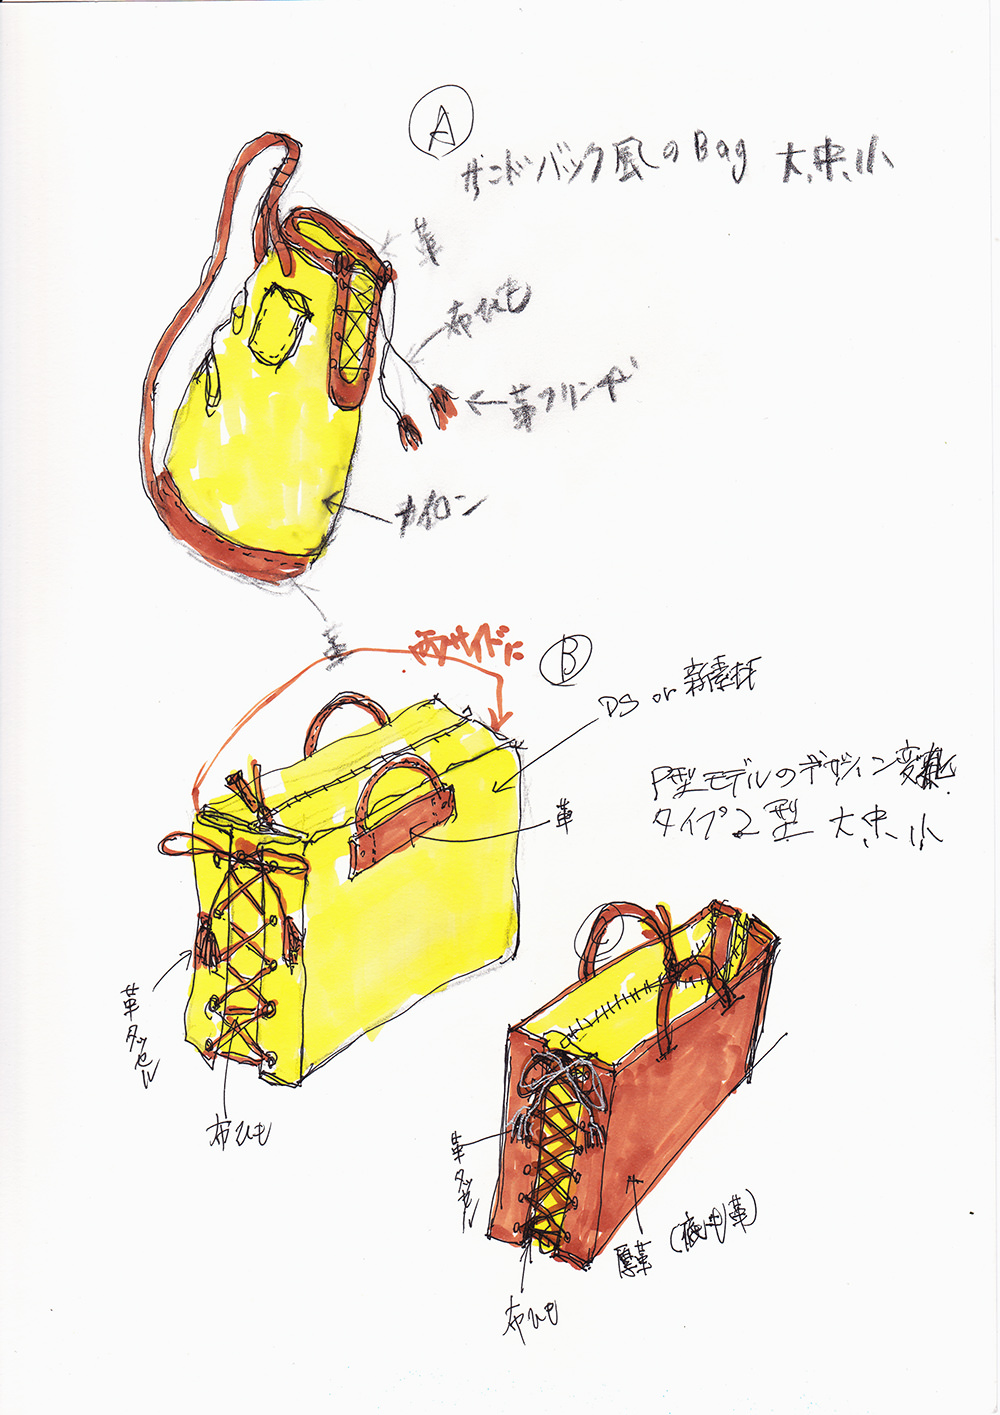 A
サンドバック風のBag 大、中、小
革
布ひも
革フリンヂ
ナイロン
革
両サイドに
B
DS or 新素材
P型モデルのデザイン変化
タイプ2型 大、中、小
革
革タッセル
布ひも
革タッセル
厚革 (底も革)
布ひも